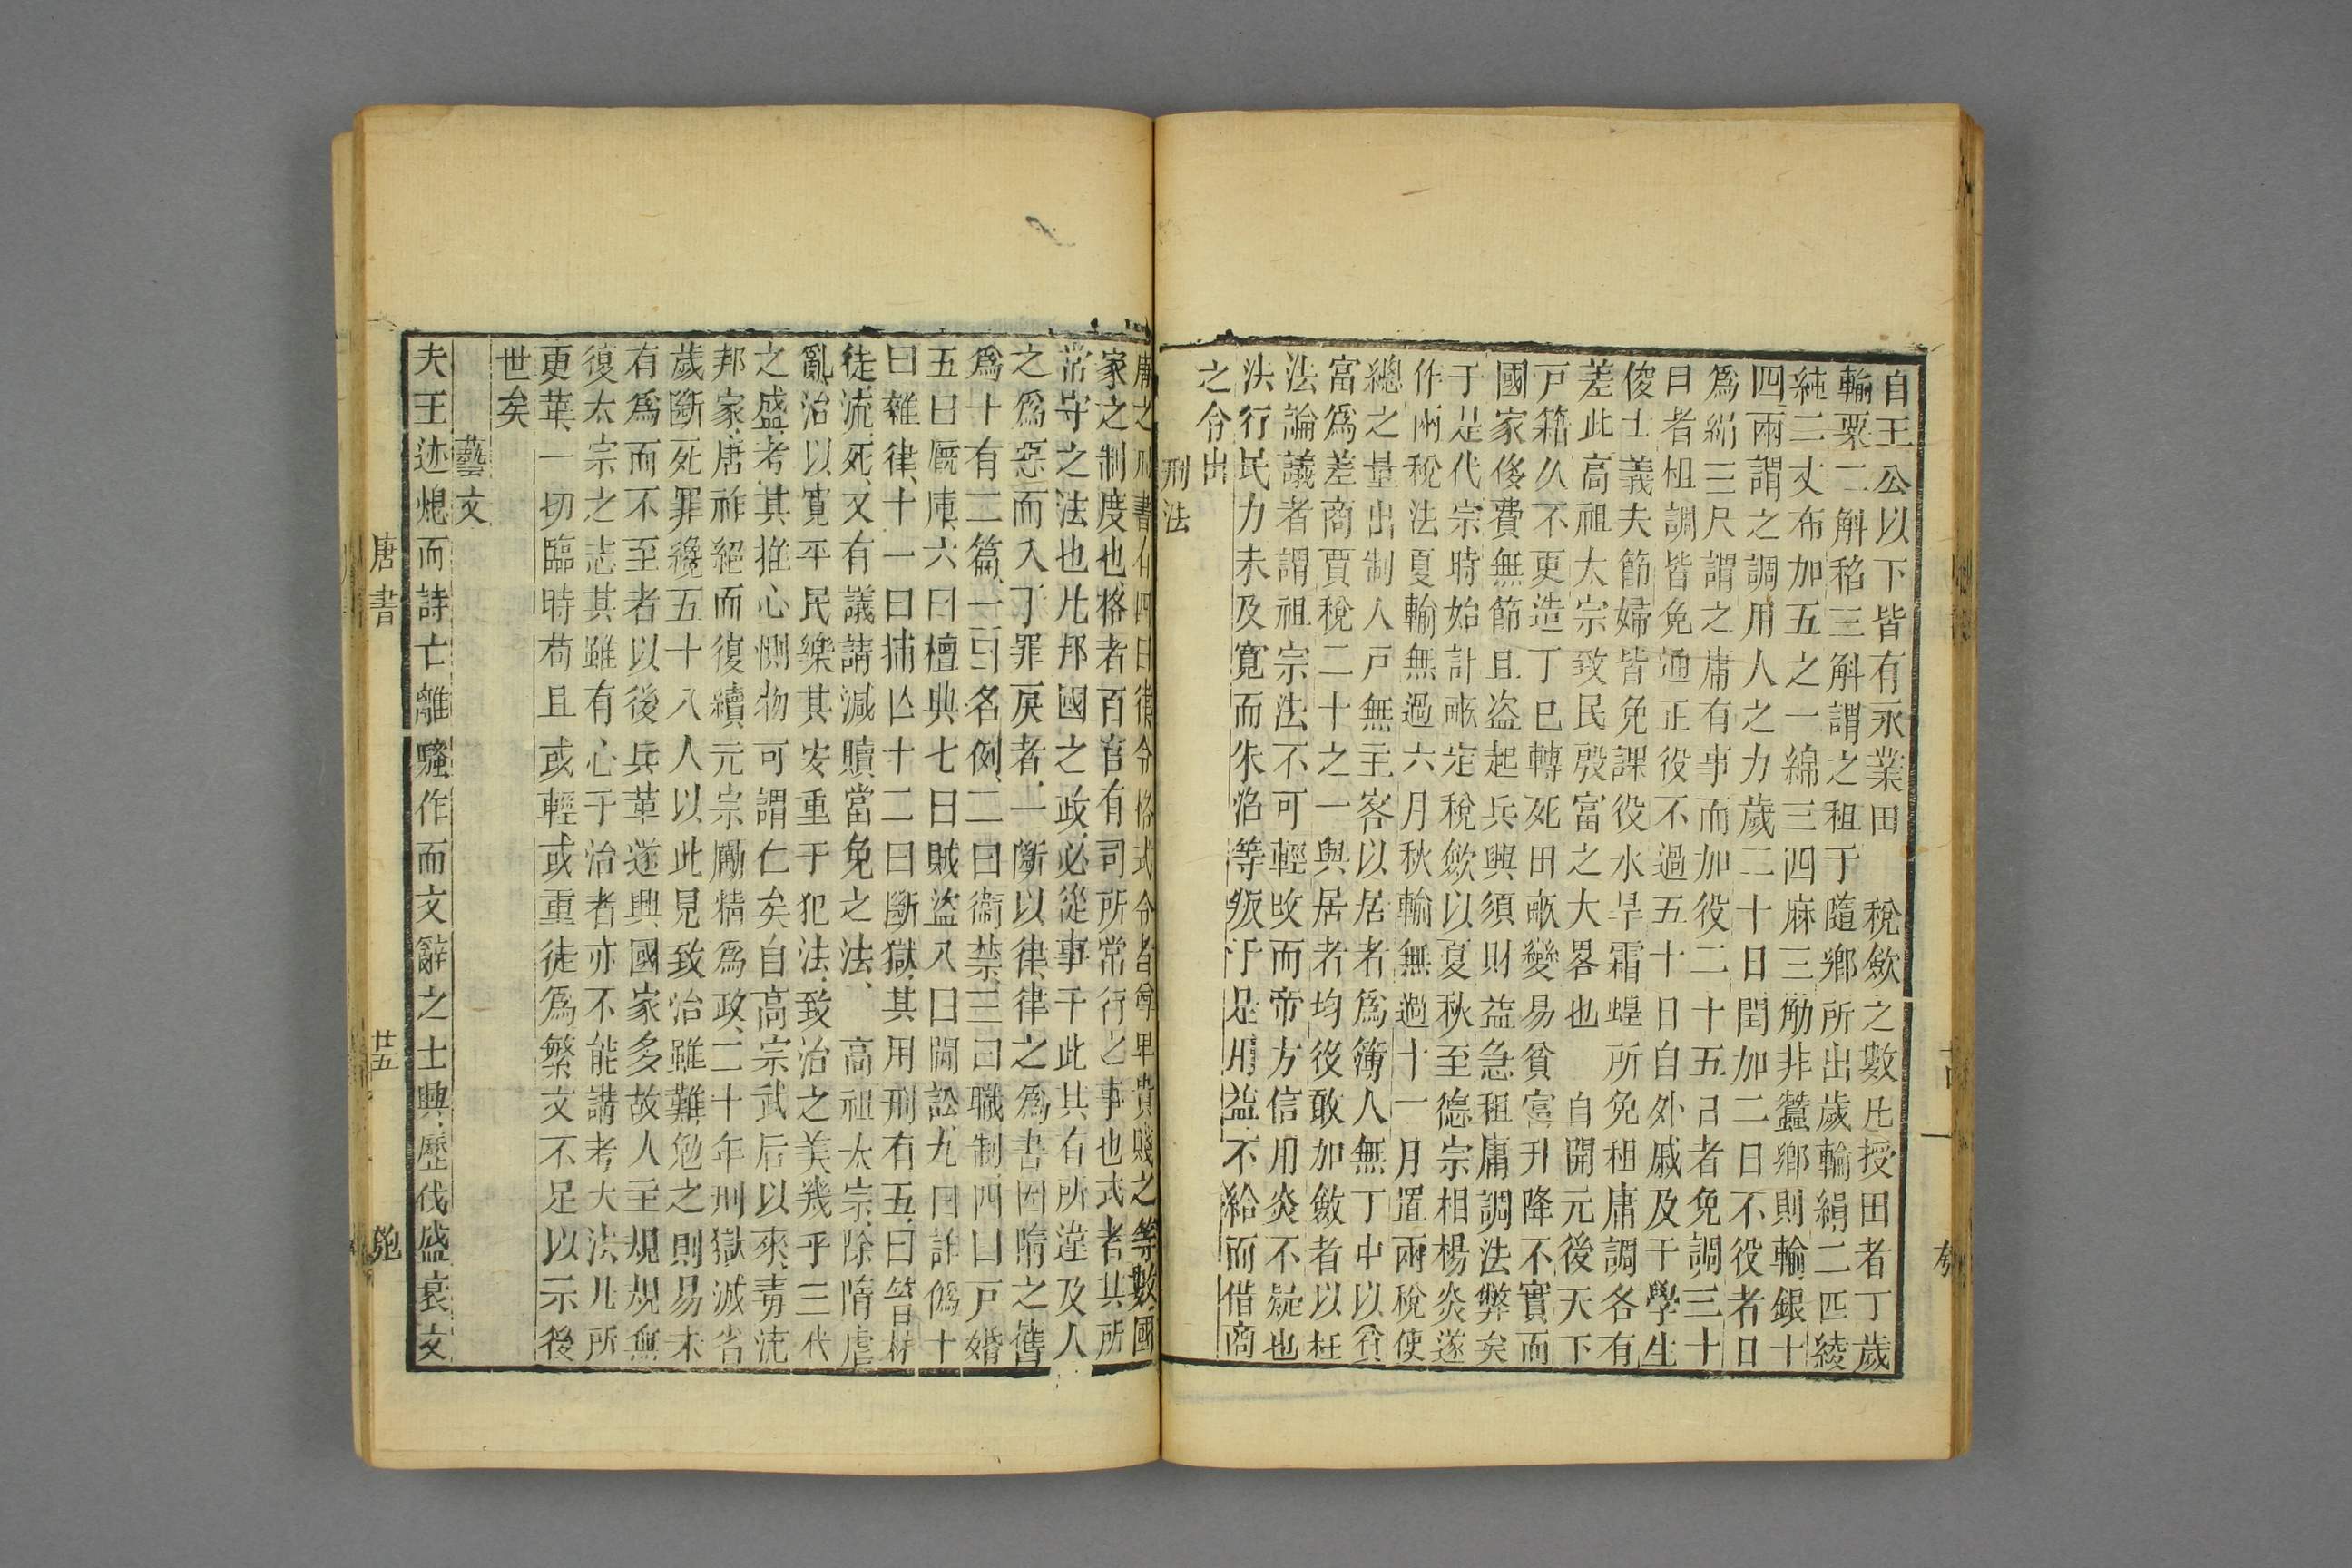 自王公以下皆有永業田　稅斂之數凡授田者丁歲
輸粟二斛稻三斛謂之租丁隨鄉所出歲輸絹二匹綾
絁二丈布加五之一綿三四麻三觔非蠶鄉則輸銀十
四兩謂之調用人之力歲二十日閏加二日不役者日
爲絹三尺謂之庸有事而加役二十五日者免調三十
日者租調皆免通正役不過五十日自外戚及于學生
俊士義夫節婦皆免課役水旱霜蝗　所免租庸調各有
差此高祖太宗致民殷富之大畧也　自開元後天下
戸籍久不更造丁巳轉死田畝變易貧富升降不實而
國家後費無節且盗起兵興須財益急租庸調法弊矣
于是代宗時始計畝定稅斂以夏秋至德宗相楊炎遂
作兩稅法夏輸無過六月秋輸無過十一月置兩稅使
總之量出制人戸無主客以居者爲簿人無丁中以貧
富爲差商賈稅二十之一與居者均役敢加斂者以枉
法論議者謂祖宗法不可輕改而帝方信用炎不疑也
法行民力未及寛而朱滔等叛于是用益不給而借商
之令出
刑法
唐之刑書有四曰律令格式令者尊卑貴賤之等數國
家之制度也格者百官有司所常行之事也式者其所
常守之法也凡邦國之政必從事于此其有所違及人
之爲惡而入于罪戾者一斷以律律之爲書因隋之舊
爲十有二篇一曰名例二曰衞禁三曰職制四曰戸婚
五曰厩庫六曰檀典七曰賊盜八曰鬭訟九曰詐僞十
曰雜律十一曰捕亾十二曰斷獄其用刑有五曰笞杖
徒流死又有議請減贖當免之法　高祖太宗除隋虐
亂治以寛平民樂其安重于犯法致治之美幾乎三代
之盛考其推心惻物可謂仁矣自高宗武后以來毒流
邦家唐祚絕而復續元宗勵精爲政二十年刑獄減省
歲斷死罪纔五十八人以此見致治雖難勉之則易未
有爲而不至者以後兵革遂興國家多故人主規規無
復太宗之志其雖有心于治者亦不能講考大法凡所
更革一切臨時苟且或輕或重徒爲繁文不足以示後
世矣
藝文
夫王迹熄而詩亡離騷作而文辭之士興歷代盛衰文
唐書
廿五